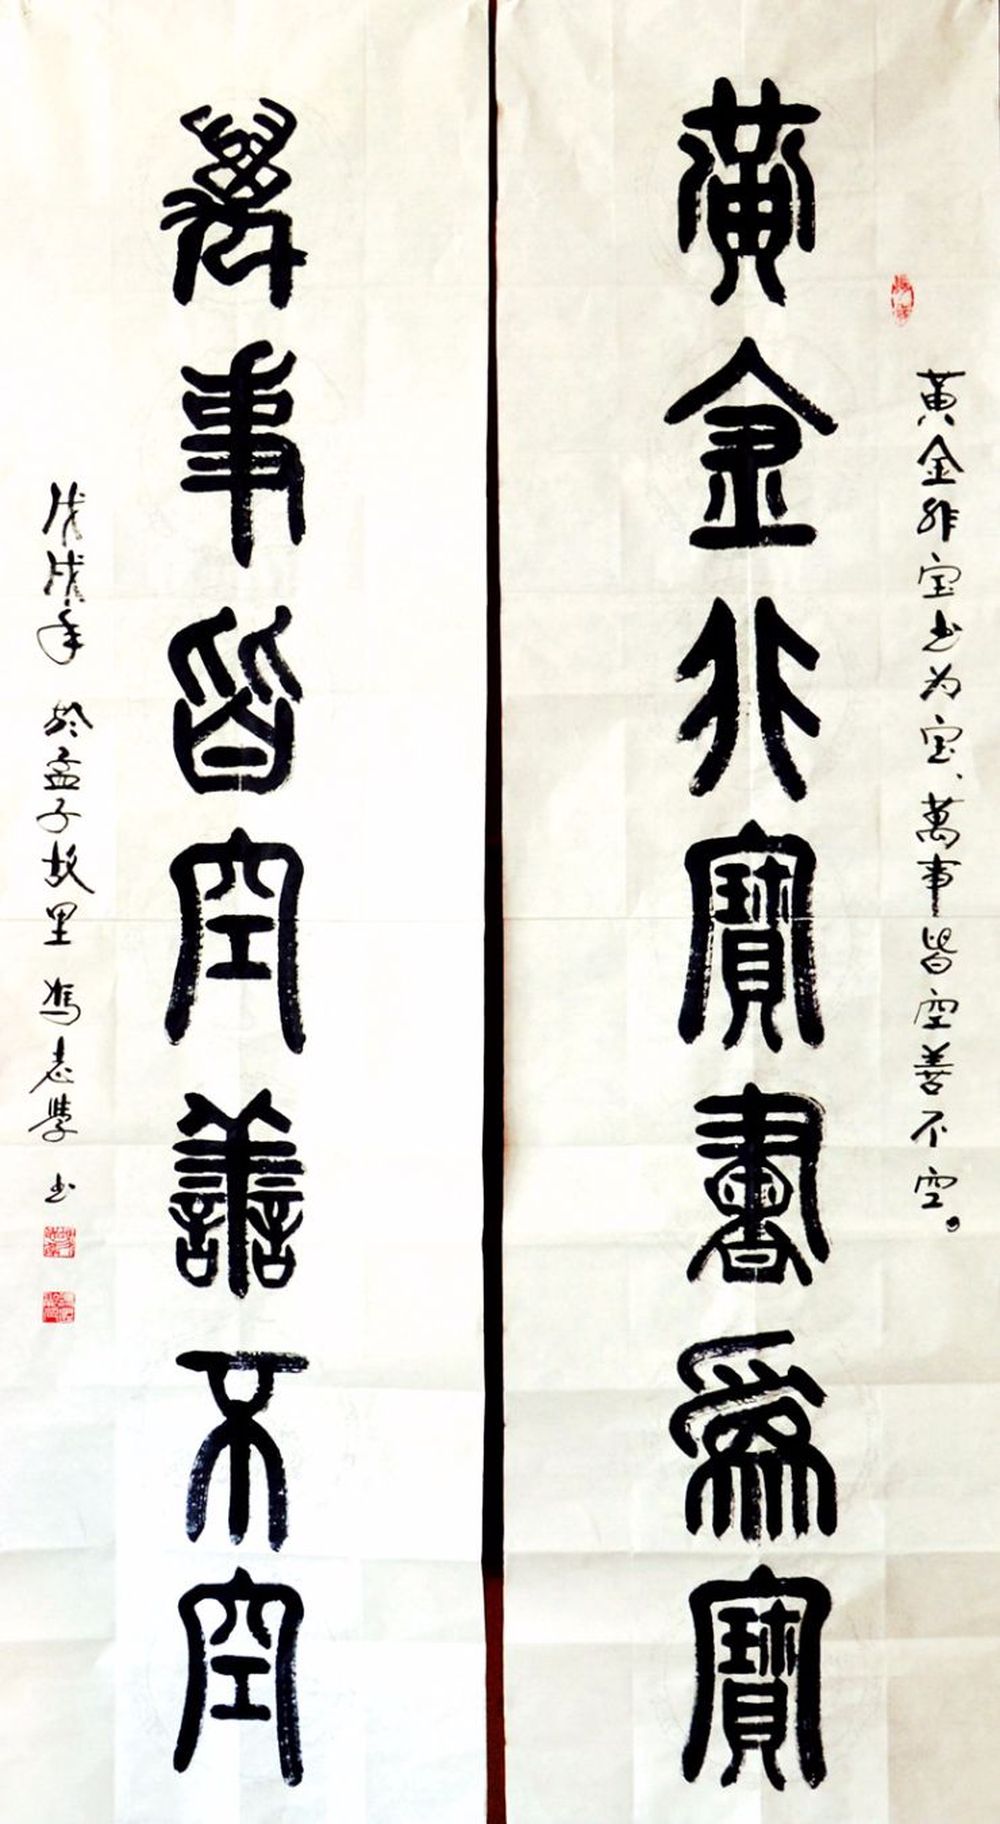 黃金非寶書為寶
黄金非宝书为宝、萬事皆空善不空。
萬事皆空善不空
戊戌年 於孟子故里 冯志學 书